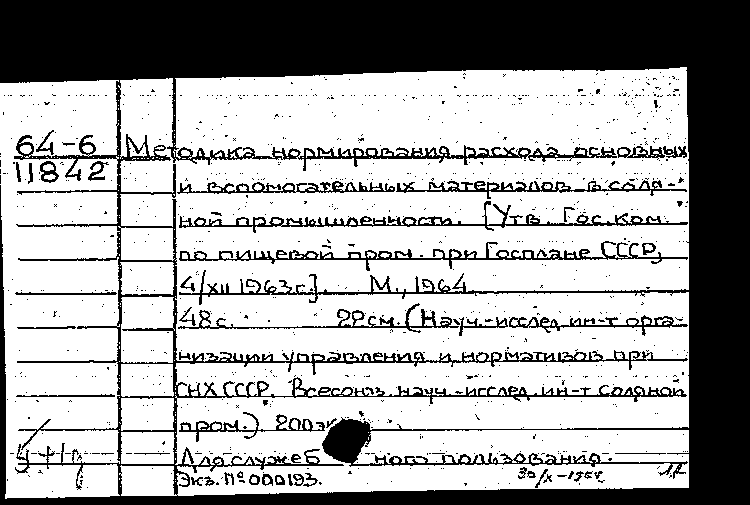 64-6 Методика нормирования расхода основных
11842
и вспомогательных материалов в соля-
ной промышленности. [Утв. Гос. ком.
по пищевой пром. при Госплане СССР,
4/XII 1963г.]. М., 1964
48с. 22см. (Науч.-исслед. ин-т орга-
низации управления и нормативов при
СНХ СССР. Всесоюз. науч.-исслед. ин-т соляной
пром.) 200эк
Для служеб ного пользования.
Экз. № 000193.